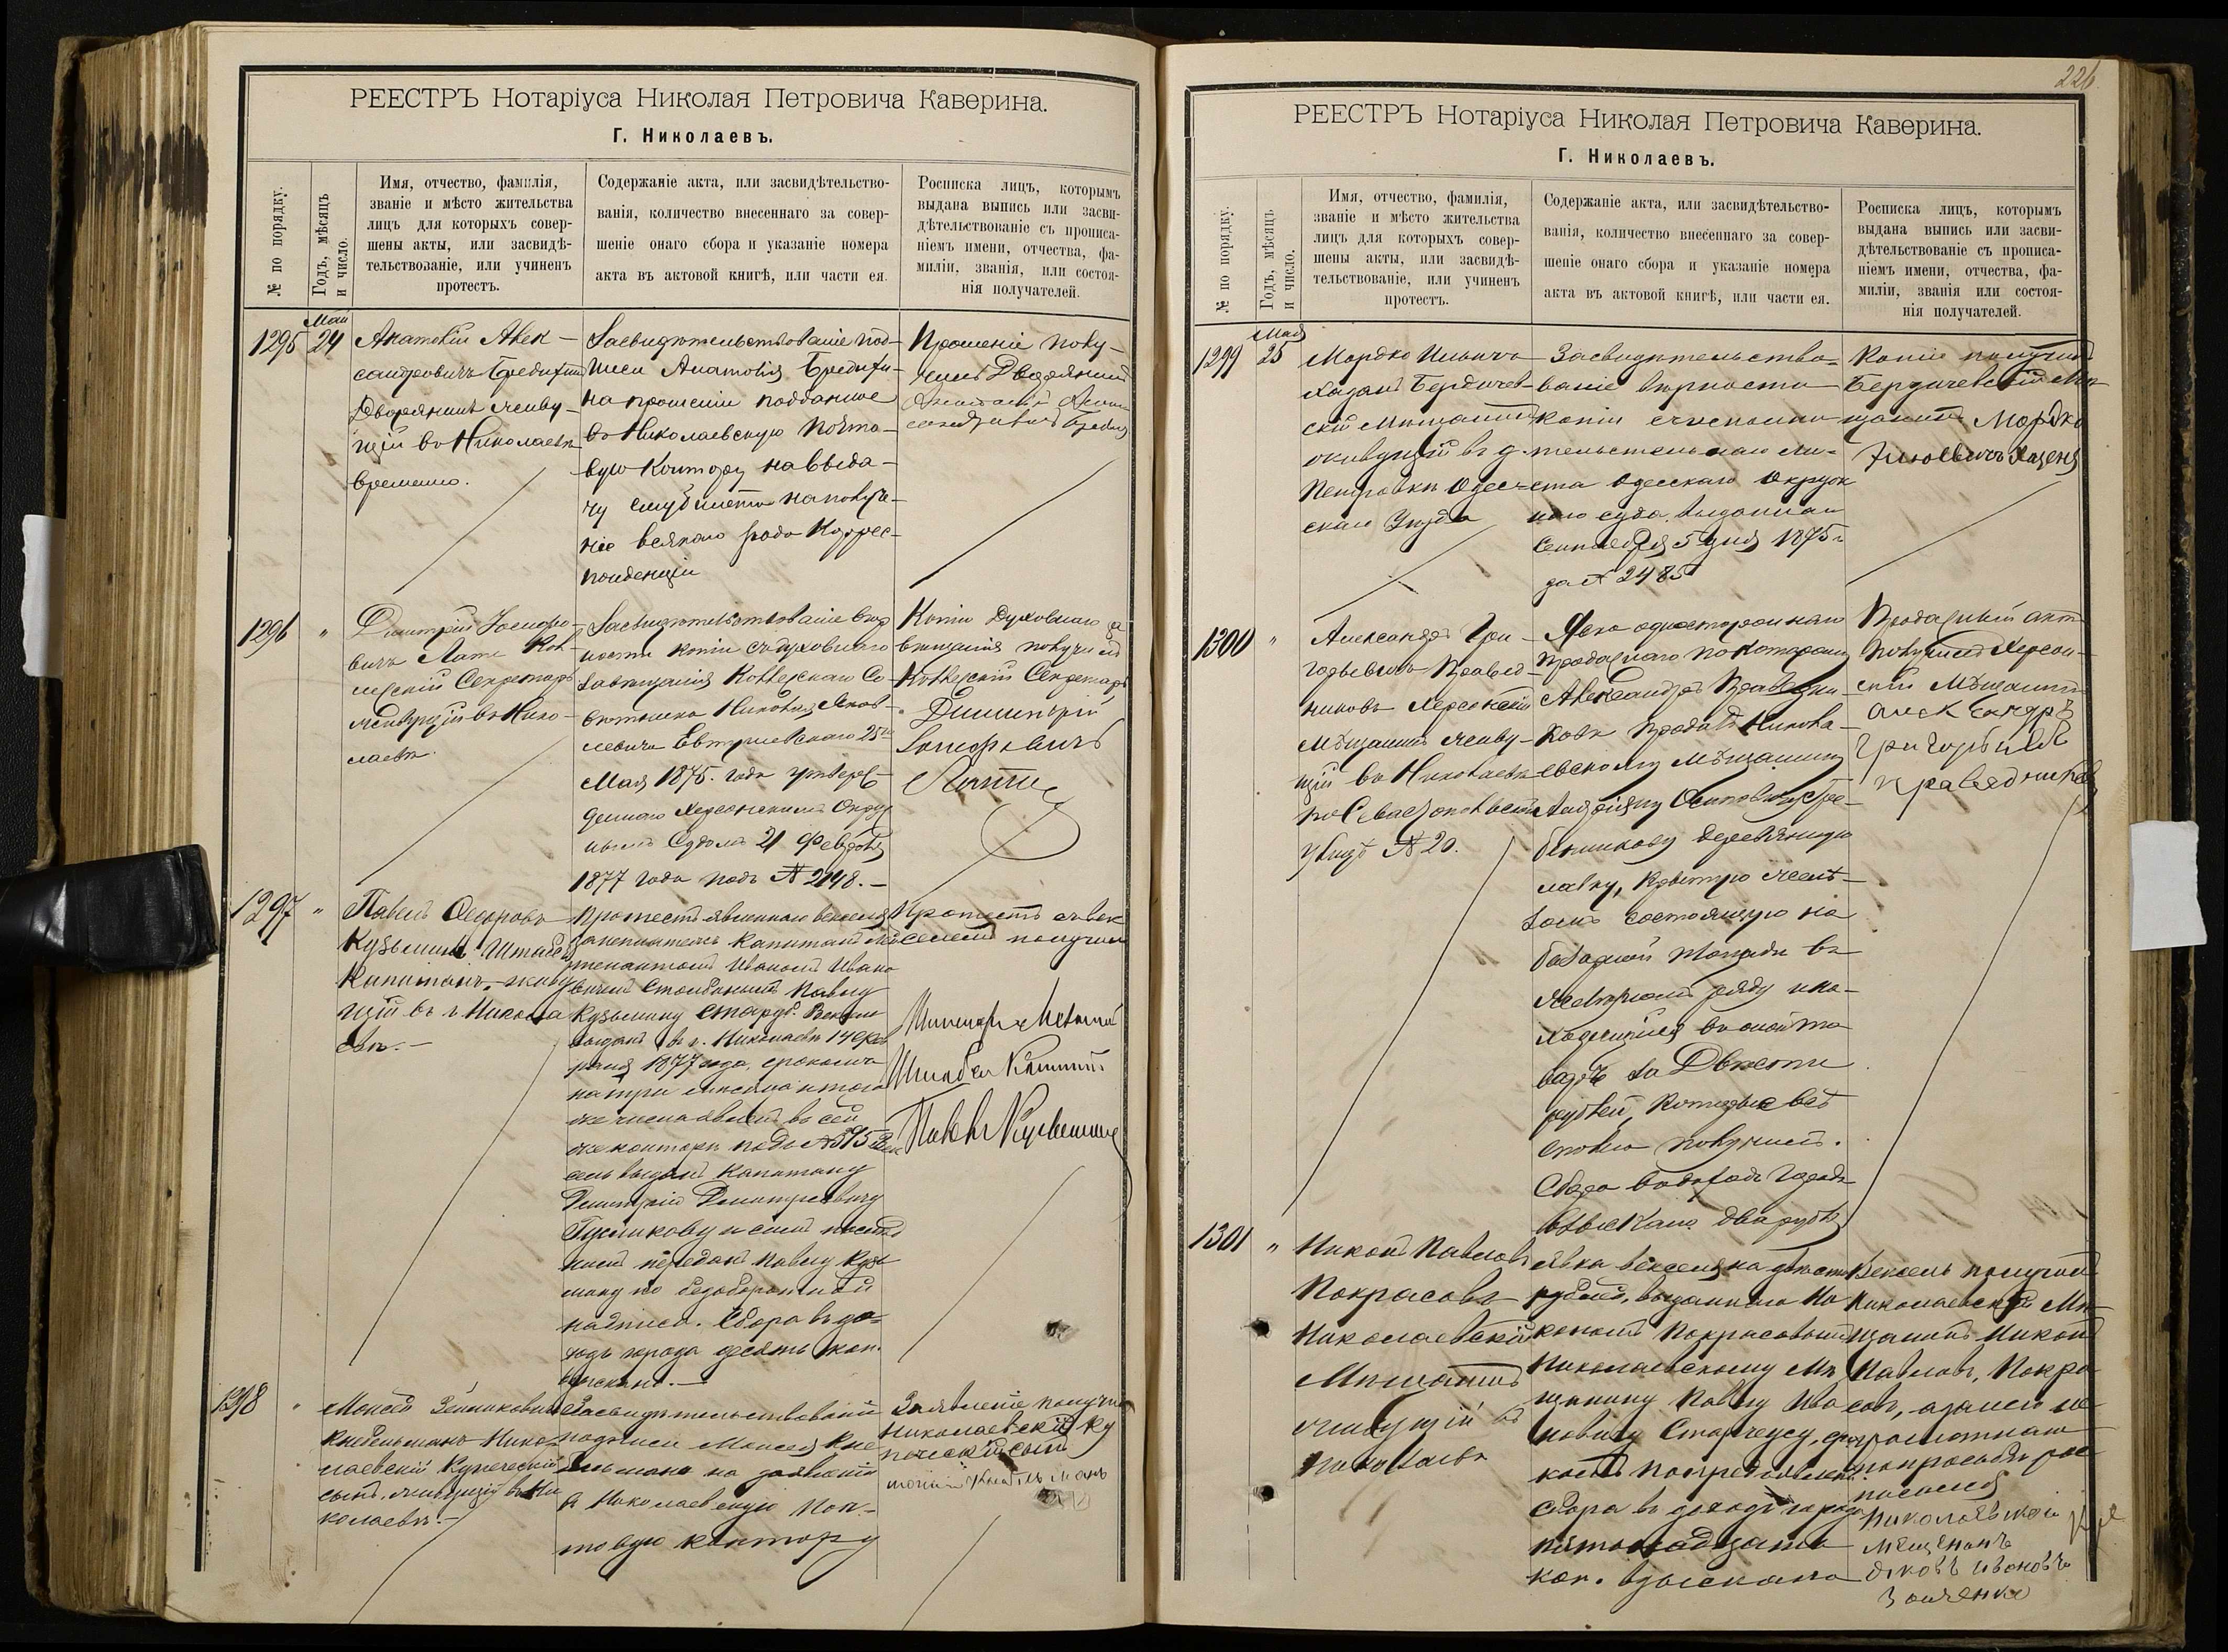 РЕЕСТРЪ Нотаріуса Николая Петровича Каверина.
Г. Николаевъ.
№ по порядку.
Годъ, мѣсяцъ
и число.
Имя, отчество, фамилія,
званіе и мѣсто жительства
лицъ для которыхъ совер-
шены акты, или засвидѣ-
тельствованіе, или учиненъ
протестъ.
Содержаніе акта, или засвидѣтельство-
ванія, количество внесеннаго за совер-
шеніе онаго сбора и указаніе номера
акта въ актовой книгѣ, или части ея.
Росписка лицъ, которымъ
выдана выпись или засви-
дѣтельствованіе съ прописа-
ніемъ имени, отчества, фа-
миліи, званія, или состоя-
нія получателей.
1295
Май
24
Анатолій Алек-
сандровичъ
Дворянинъ живу-
щій въ Николаевѣ
временно.
Засвидѣтельствованіе под-
писи Анатолія
на прошеніи поданное
въ Николаевскую Почто-
вую Контору на выда-
чу
на получе-
ніе всякаго рода Коррес-
понденціи
Прошеніе полу-
чилъ Дворянинъ
1296
"
Дмитрій Іосифо-
вичъ Кол-
лежскій Секретарь
живущій въ Нико-
лаевѣ.
Засвидѣтельствованіе вѣр
ности копіи съ духовнаго
завѣщанія Коллежскаго Со-
вѣтника Николая Яков-
левича
Мая 1875 года утверж-
деннаго Херсонскимъ Окруж
нымъ Судомъ 21 Февраля
1877 года подъ № 2148.-
Копію Духовнаго за
вѣщанія получилъ
Коллежскій Секретарь
Димитрій
Іосифовичъ
1297
"
Павелъ Федоровъ
Кузьминъ Штабсъ
Капитанъ, живу
щій въ г. Никола
евѣ.-
Протестъ явленнаго векселя
Капитанъ Лей
тенантомъ Иваномъ Ивано
вичемъ Павлу
Кузьмину
выданъ въ г. Николаевѣ 14 Фев
раля 1877 года, срокомъ
на три мѣсяца и того
же числа явленъ въ сей
же конторѣ подъ № 395 Век
сель выданъ Капитану
Дмитрію Дмитріевичу
Гусликову и симъ послѣд
нимъ переданъ Павлу Кузь
мину по безоборотной
надписи. Сбора въ до-
ходъ города десять коп.
взыскано.-
Протестъ съ век
селемъ получилъ
Штабсъ Капитанъ
Павелъ Кузьминъ
1298
"
Моисей
Кнебельманъ Нико-
лаевскій Купеческій
сынъ, живущій въ Ни
колаевѣ.-
Засвидѣтельствованіе
подписи Моисея Кне
бельмана на заявленіи
въ Николаевскую Поч-
товую контору
Заявленіе получилъ
Николаевскій Ку
печескій сынъ
226
РЕЕСТРЪ Нотаріуса Николая Петровича Каверина.
Г. Николаевъ.
№ по порядку.
Годъ, мѣсяцъ
и число.
Имя, отчество, фамилія,
званіе и мѣсто жительства
лицъ для которыхъ совер-
шены акты, или засвидѣ-
тельствованіе, или учиненъ
протестъ.
Содержаніе акта, или засвидѣтельство-
ванія, количество внесеннаго за совер-
шеніе онаго сбора и указаніе номера
акта въ актовой книгѣ, или части ея.
Росписка лицъ, которымъ
выдана выпись или засви-
дѣтельствованіе съ прописа-
ніемъ имени, отчества, фа-
миліи, званія или состоя-
нія получателей.
1299
Мая
25
Мордко
Хазанъ Бердичев-
скій Мѣщанинъ
живущій въ д.
Петровкѣ Одес-
скаго Уѣзда
Засвидѣтельство-
ваніе вѣрности
копіи съ исполни
тельнаго ли-
ста Одесскаго Окруж
наго суда, выданнаго
Сентября 5 дня 1875 г
за № 2485
Копію получилъ
Бердичевскій Мѣ-
щанинъ Мордко
1300
"
Александръ Гри-
горьевичъ Правед-
никовъ Херсонскій
Мѣщанинъ живу-
щій въ Николаевѣ
по Севастопольской
улицѣ № 20.
Явка одностороннаго
продажнаго по которому
Александръ Праведни
ковъ продалъ Никола-
евскому Мѣщанину
Осиповичу Гре-
бенникову деревянную
лавку, крытую желѣ-
зомъ состоящую на
базарной площади въ
ряду и на-
ходящійся въ оной то
варъ за Двѣсти
рублей, которые всѣ
сполна получилъ.
Сбора въ доходъ города
взыскано два рубля
Продажный актъ
получилъ Херсон-
скій Мѣщанинъ
Александръ
Григорьевъ
Праведниковъ
1301
"
Никонъ Павловъ
Покрасовъ
Николаевскій
Мѣщанинъ
живущій въ
Николаевѣ
Явка векселя на двѣсти
рублей, выданнаго Ни
кономъ Покрасовымъ
Николаевскому Мѣ
щанину Павлу Ива
новичу
Сбора въ доходъ города
пятнадцать
коп. взыскано
Вексель получилъ
Николаевскій Мѣ-
щанинъ Никонъ
Павловъ, Покра
совъ, а за него не
грамотнаго
по просьбѣ рос
писался
Николаевский
мещенинъ
Яковъ Ивановъ